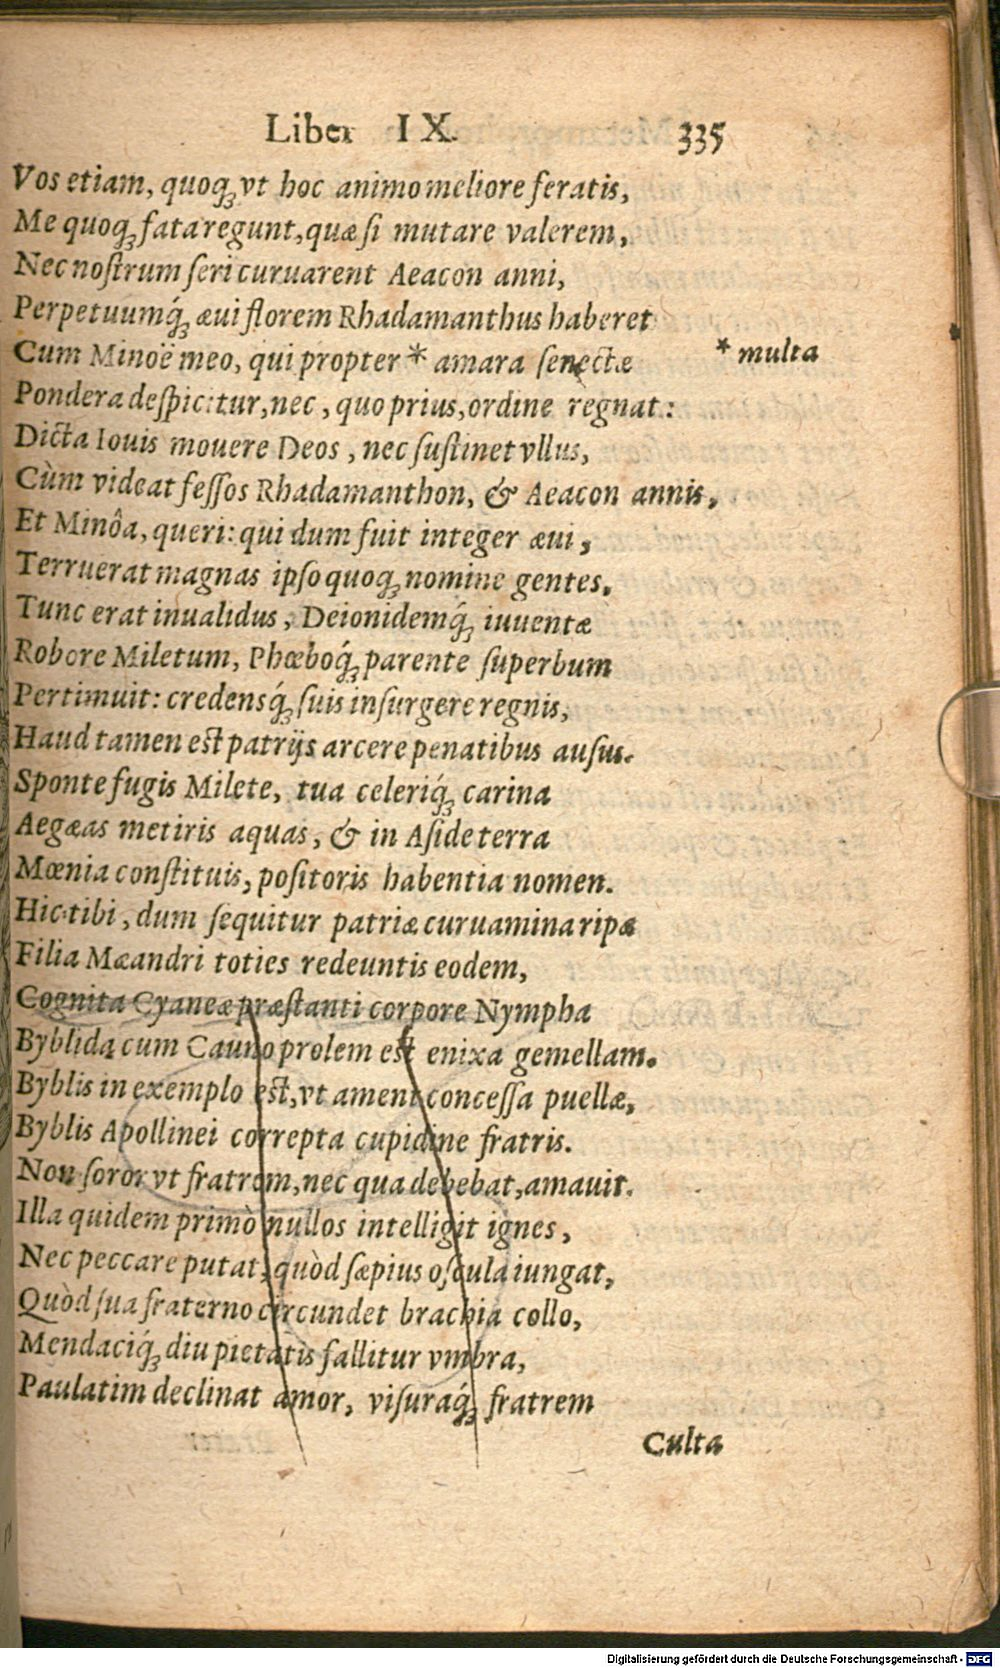 Liber IX. 335
Vos etiam, quoqꝫ vt hoc animo meliore feratis,
Me quoqꝫ fata regunt, quæ si mutare valerem,
Nec nostrum seri curuarent Aeacon anni,
Perpetuumq́ꝫ æui florem Rhadamanthus haberet
Cum Minoë meo, qui propter * amara senectæ * multa
Pondera despicitur, nec, quo prius, ordine regnat:
Dicta Iouis mouere Deos, nec sustinet vllus,
Cùm videat fessos Rhadamanthon, & Aeacon annis,
Et Minôa, queri: qui dum fuit integer æui,
Terruerat magnas ipso quoqꝫ nomine gentes.
Tunc erat inualidus, Deionidemq́ꝫ iuuentæ
Robore Miletum, Phœboq́ꝫ parente superbum
Pertimuit: credensq́ꝫ suis insurgere regnis,
Haud tamen est patrijs arcere penatibus ausus.
Sponte fugis Milete, tua celeriq́ꝫ carina
Aegæas metiris aquas, & in Aside terra
Mœnia constituis, positoris habentia nomen.
Hic tibi, dum sequitur patriæ curuamina ripæ
Filia Mæandri toties redeuntis eodem,
Cognita Cyaneæ præstanti corpore Nympha
Byblida cum Cauno prolem est enixa gemellam.
Byblis in exemplo est, vt ament concessa puellæ,
Byblis Apollinei correpta cupidine fratris.
Non soror vt fratrem, nec qua debebat, amauit.
Illa quidem primò nullos intelligit ignes,
Nec peccare putat, quòd sæpius oscula iungat,
Quòd sua fraterno circundet brachia collo,
Mendaciq́ꝫ diu pietatis fallitur vmbra,
Paulatim declinat amor, visuraq́ꝫ fratrem
Culta
Digitalisierung gefördert durch die Deutsche Forschungsgemeinschaft - DFG